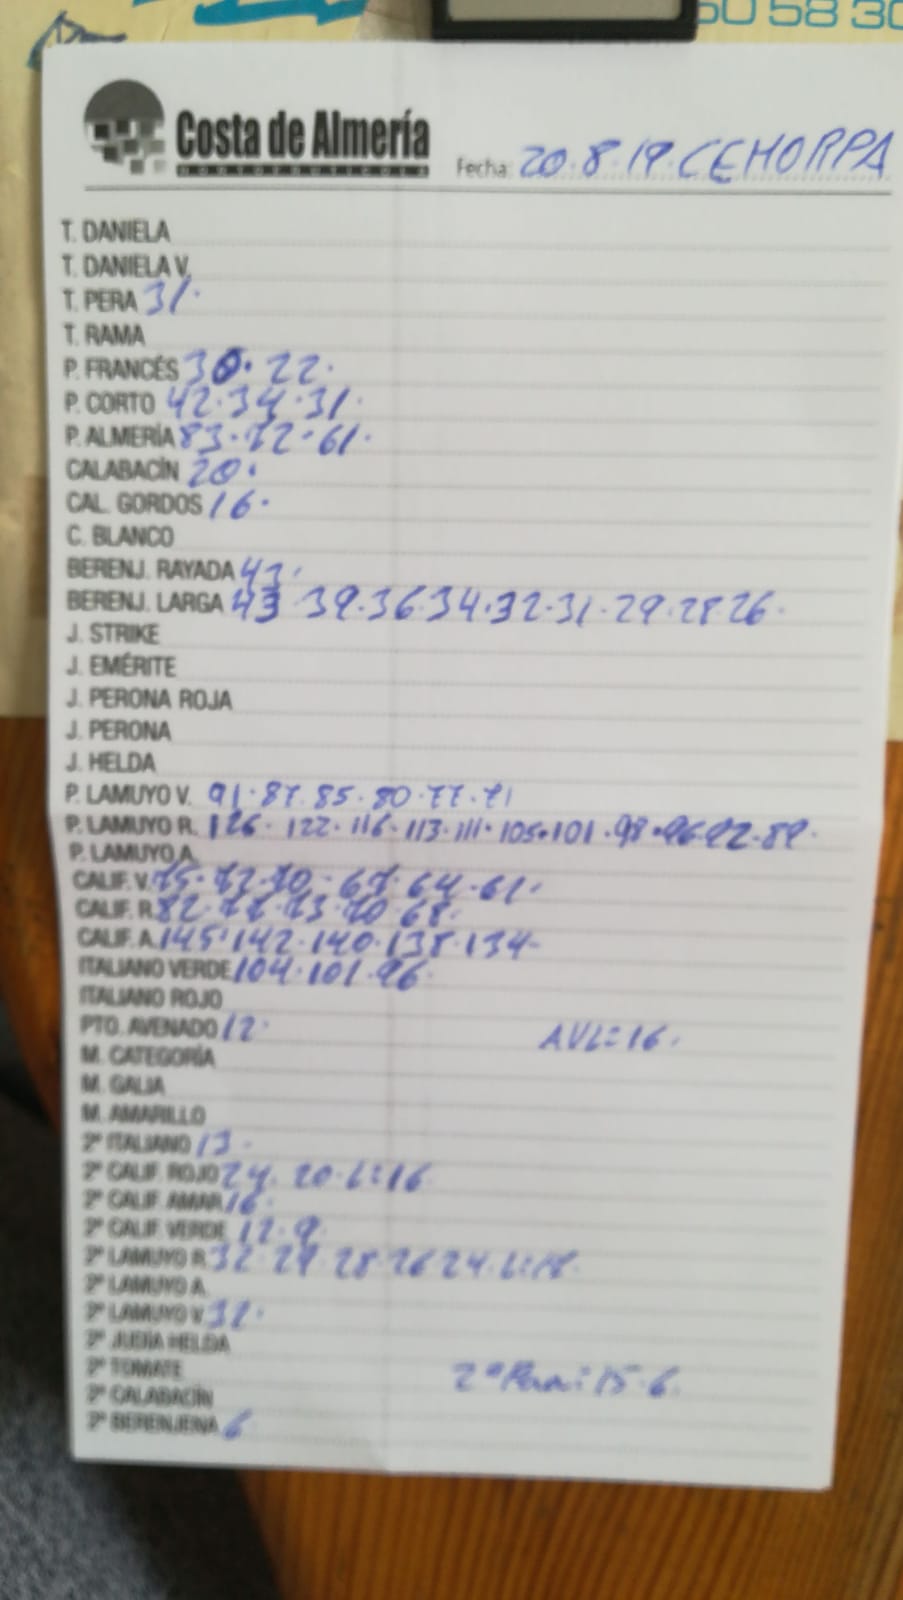 50 58 30
Costa de Almería
HORTOFRUTÍCOLA
Fecha: 20.8.19. CEHORPA
T. DANIELA
T. DANIELA V.
T. PERA 31.
T. RAMA
P. FRANCÉS 30. 22.
P. CORTO 42. 34. 31.
P. ALMERÍA 83. 72. 61.
CALABACÍN 20.
CAL. GORDOS 16.
C. BLANCO
BERENJ. RAYADA 43.
BERENJ. LARGA 43 39. 36. 34. 32. 31. 29. 28 26.
J. STRIKE
J. EMÉRITE
J. PERONA ROJA
J. PERONA
J. HELDA
P. LAMUYO V. 91. 87. 85. 80. 77. 71
P. LAMUYO R. 126. 122. 116. 113. 111. 105. 101. 98. 96 92. 89.
P. LAMUYO A.
CALIF. V. 75. 72. 70. 67. 64. 61.
CALIF. R. 82. 77. 73. 70. 68.
CALIF. A. 145. 142. 140. 138. 134-
ITALIANO VERDE 104. 101. 96.
ITALIANO ROJO
PTO. AVENADO 12. AVL=16.
M. CATEGORÍA
M. GALIA
M. AMARILLO
2ª ITALIANO 13.
2ª CALIF. ROJO 24. 20. L=16
2ª CALIF. AMAR 16.
2ª CALIF. VERDE 12. 9.
2ª LAMUYO R. 32. 29. 28. 26 24. L=18.
2ª LAMUYO A.
2ª LAMUYO V. 32.
2ª JUDÍA HELDA
2ª TOMATE 15. 6.
2ª CALABACÍN
2ª BERENJENA 6